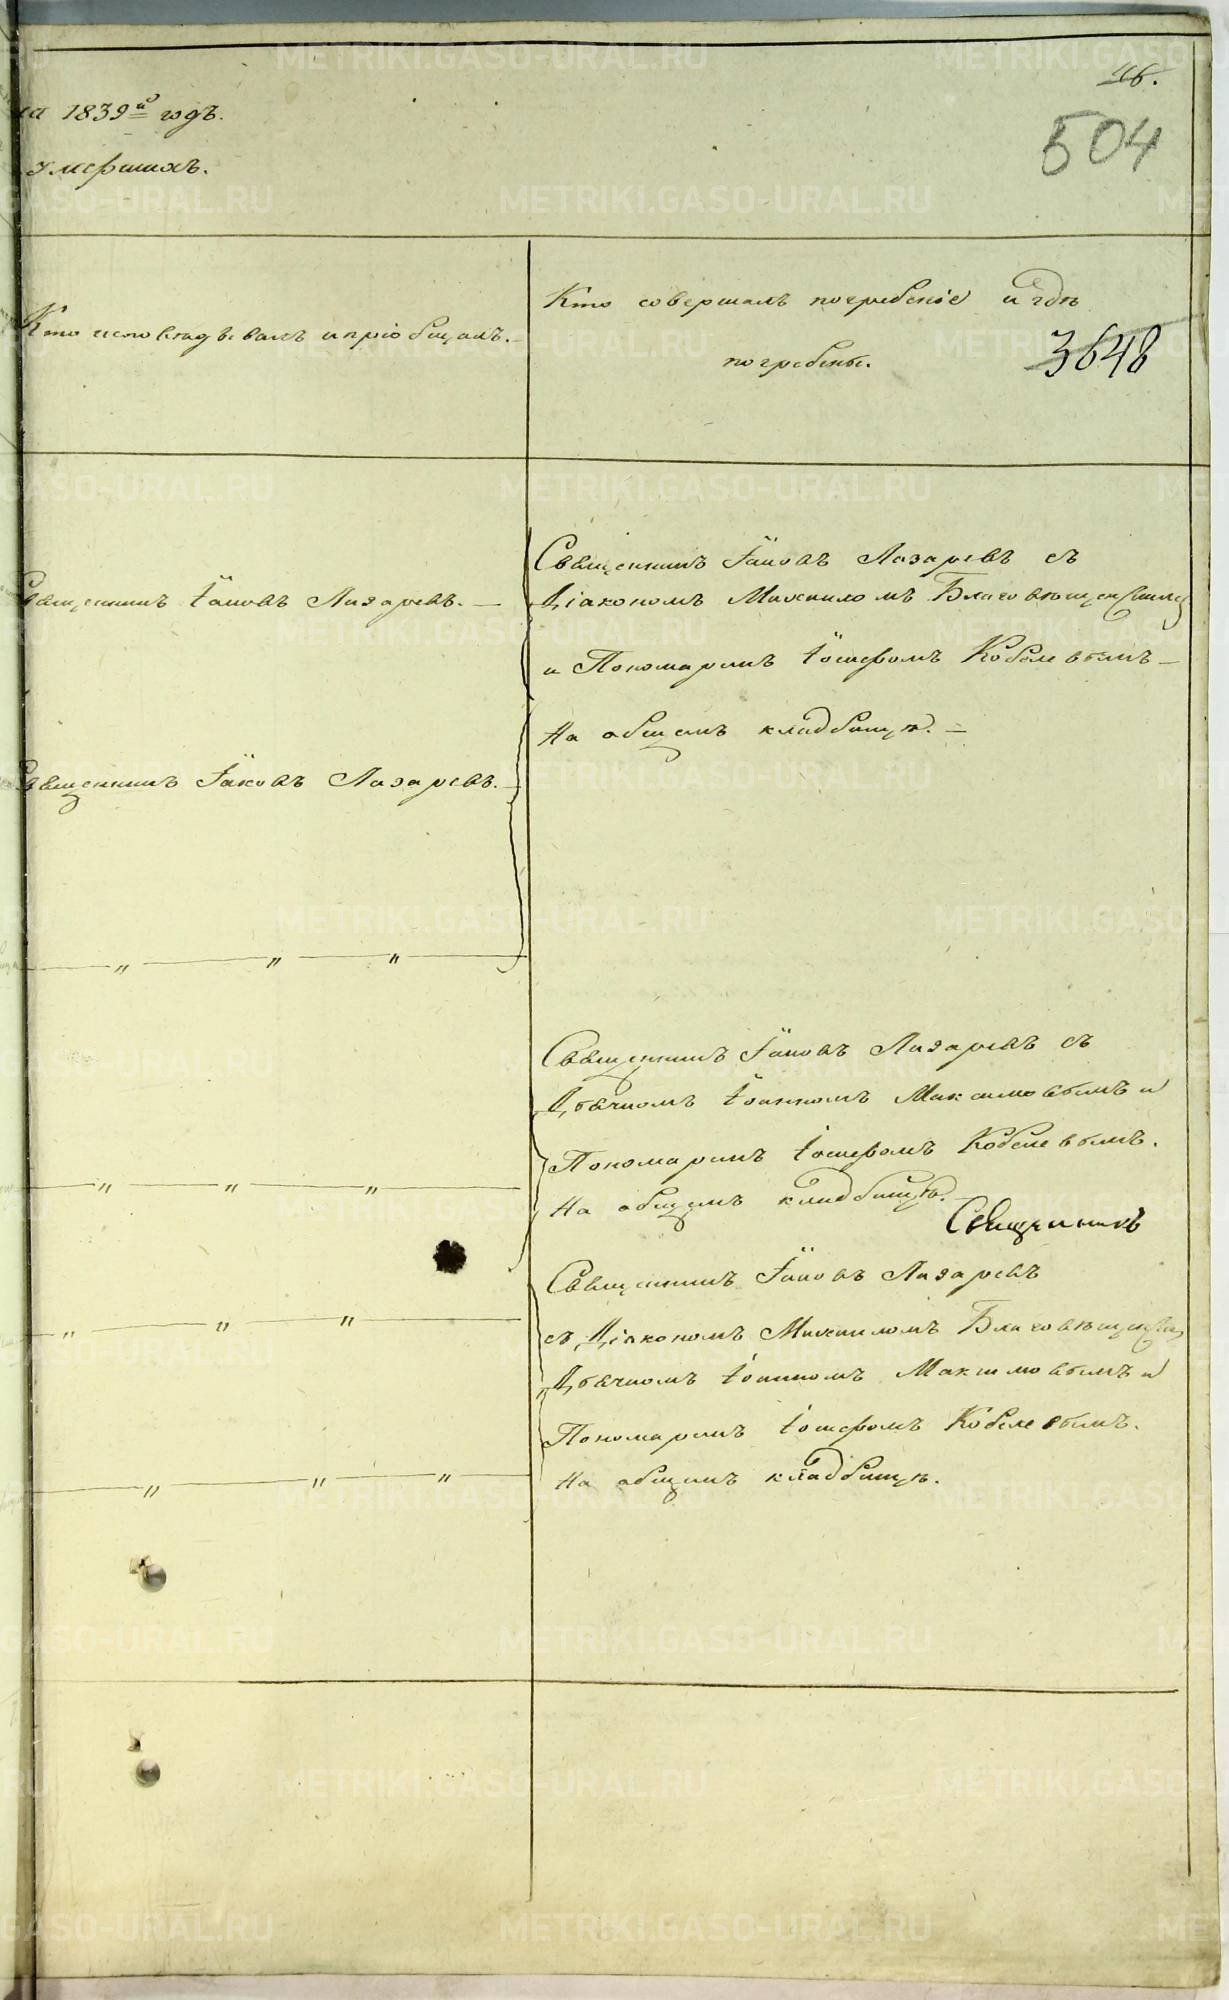 46.
на 1839й годъ.
504
умершихъ.
Кто исповѣдывалъ и пріобщалъ.
Кто совершалъ погребеніе и гдѣ
погребены.
3648
Священникъ Іаковъ Лазаревъ.
Священникъ Іаковъ Лазаревъ съ
Діакономъ Михаиломъ Благовѣщенскимъ
и Пономаремъ Іосифомъ Кобелевымъ
На общемъ кладбищѣ.
Священникъ Іаковъ Лазаревъ.
— „ — „ — „ —
Священникъ Іаковъ Лазаревъ съ
Дьячкомъ Іоанномъ Максимовымъ и
Пономаремъ Іосифомъ Кобелевымъ.
— „ — „ — „ —
На общемъ кладбищѣ.
Священникъ
Священникъ Іаковъ Лазаревъ
съ Діакономъ Михаиломъ Благовѣщенскимъ
— „ — „ — „ —
Дьячкомъ Іоанномъ Максимовымъ и
Пономаремъ Іосифомъ Кобелевымъ.
На общемъ кладбищѣ.
— „ — „ — „ —
METRIKI.GASO-URAL.RU